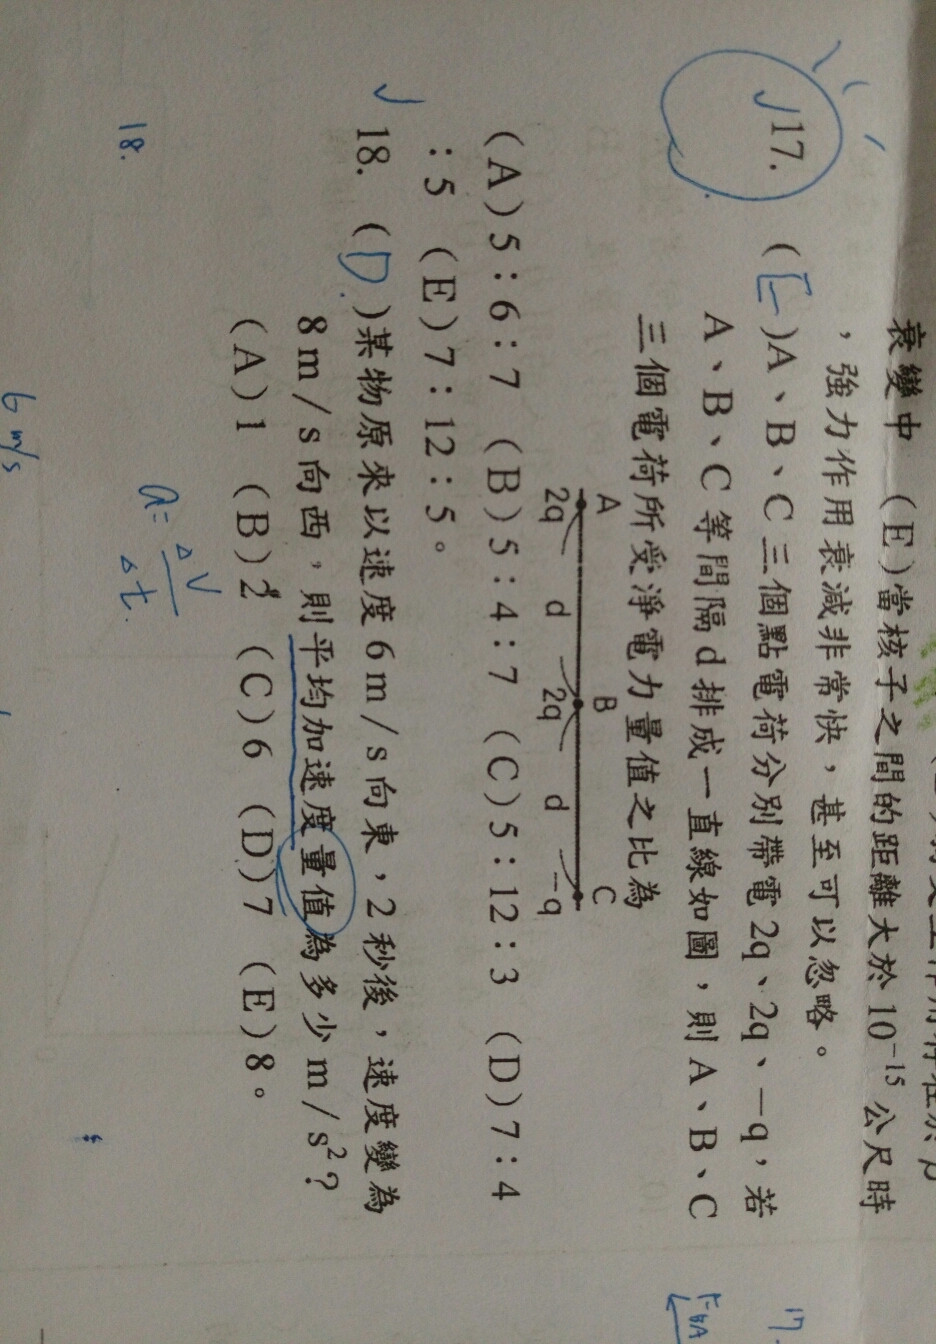 衰變中 (E)當核子之間的距離大於10⁻¹⁵公尺時
，強力作用衰減非常快，甚至可以忽略。
✓17. (E)A、B、C三個點電荷分別帶電2q、2q、－q，若
A、B、C等間隔d排成一直線如圖，則A、B、C
三個電荷所受淨電力量值之比為
A B C
2q d 2q d －q
(A)5：6：7 (B)5：4：7 (C)5：12：3 (D)7：4
：5 (E)7：12：5。
✓18. (D.)某物原來以速度6m/s向東，2秒後，速度變為
8m/s向西，則平均加速度量值為多少m/s²？
(A)1 (B)2 (C)6 (D)7 (E)8。
18.
a=ΔV/Δt.
6 m/s
17.
F BA